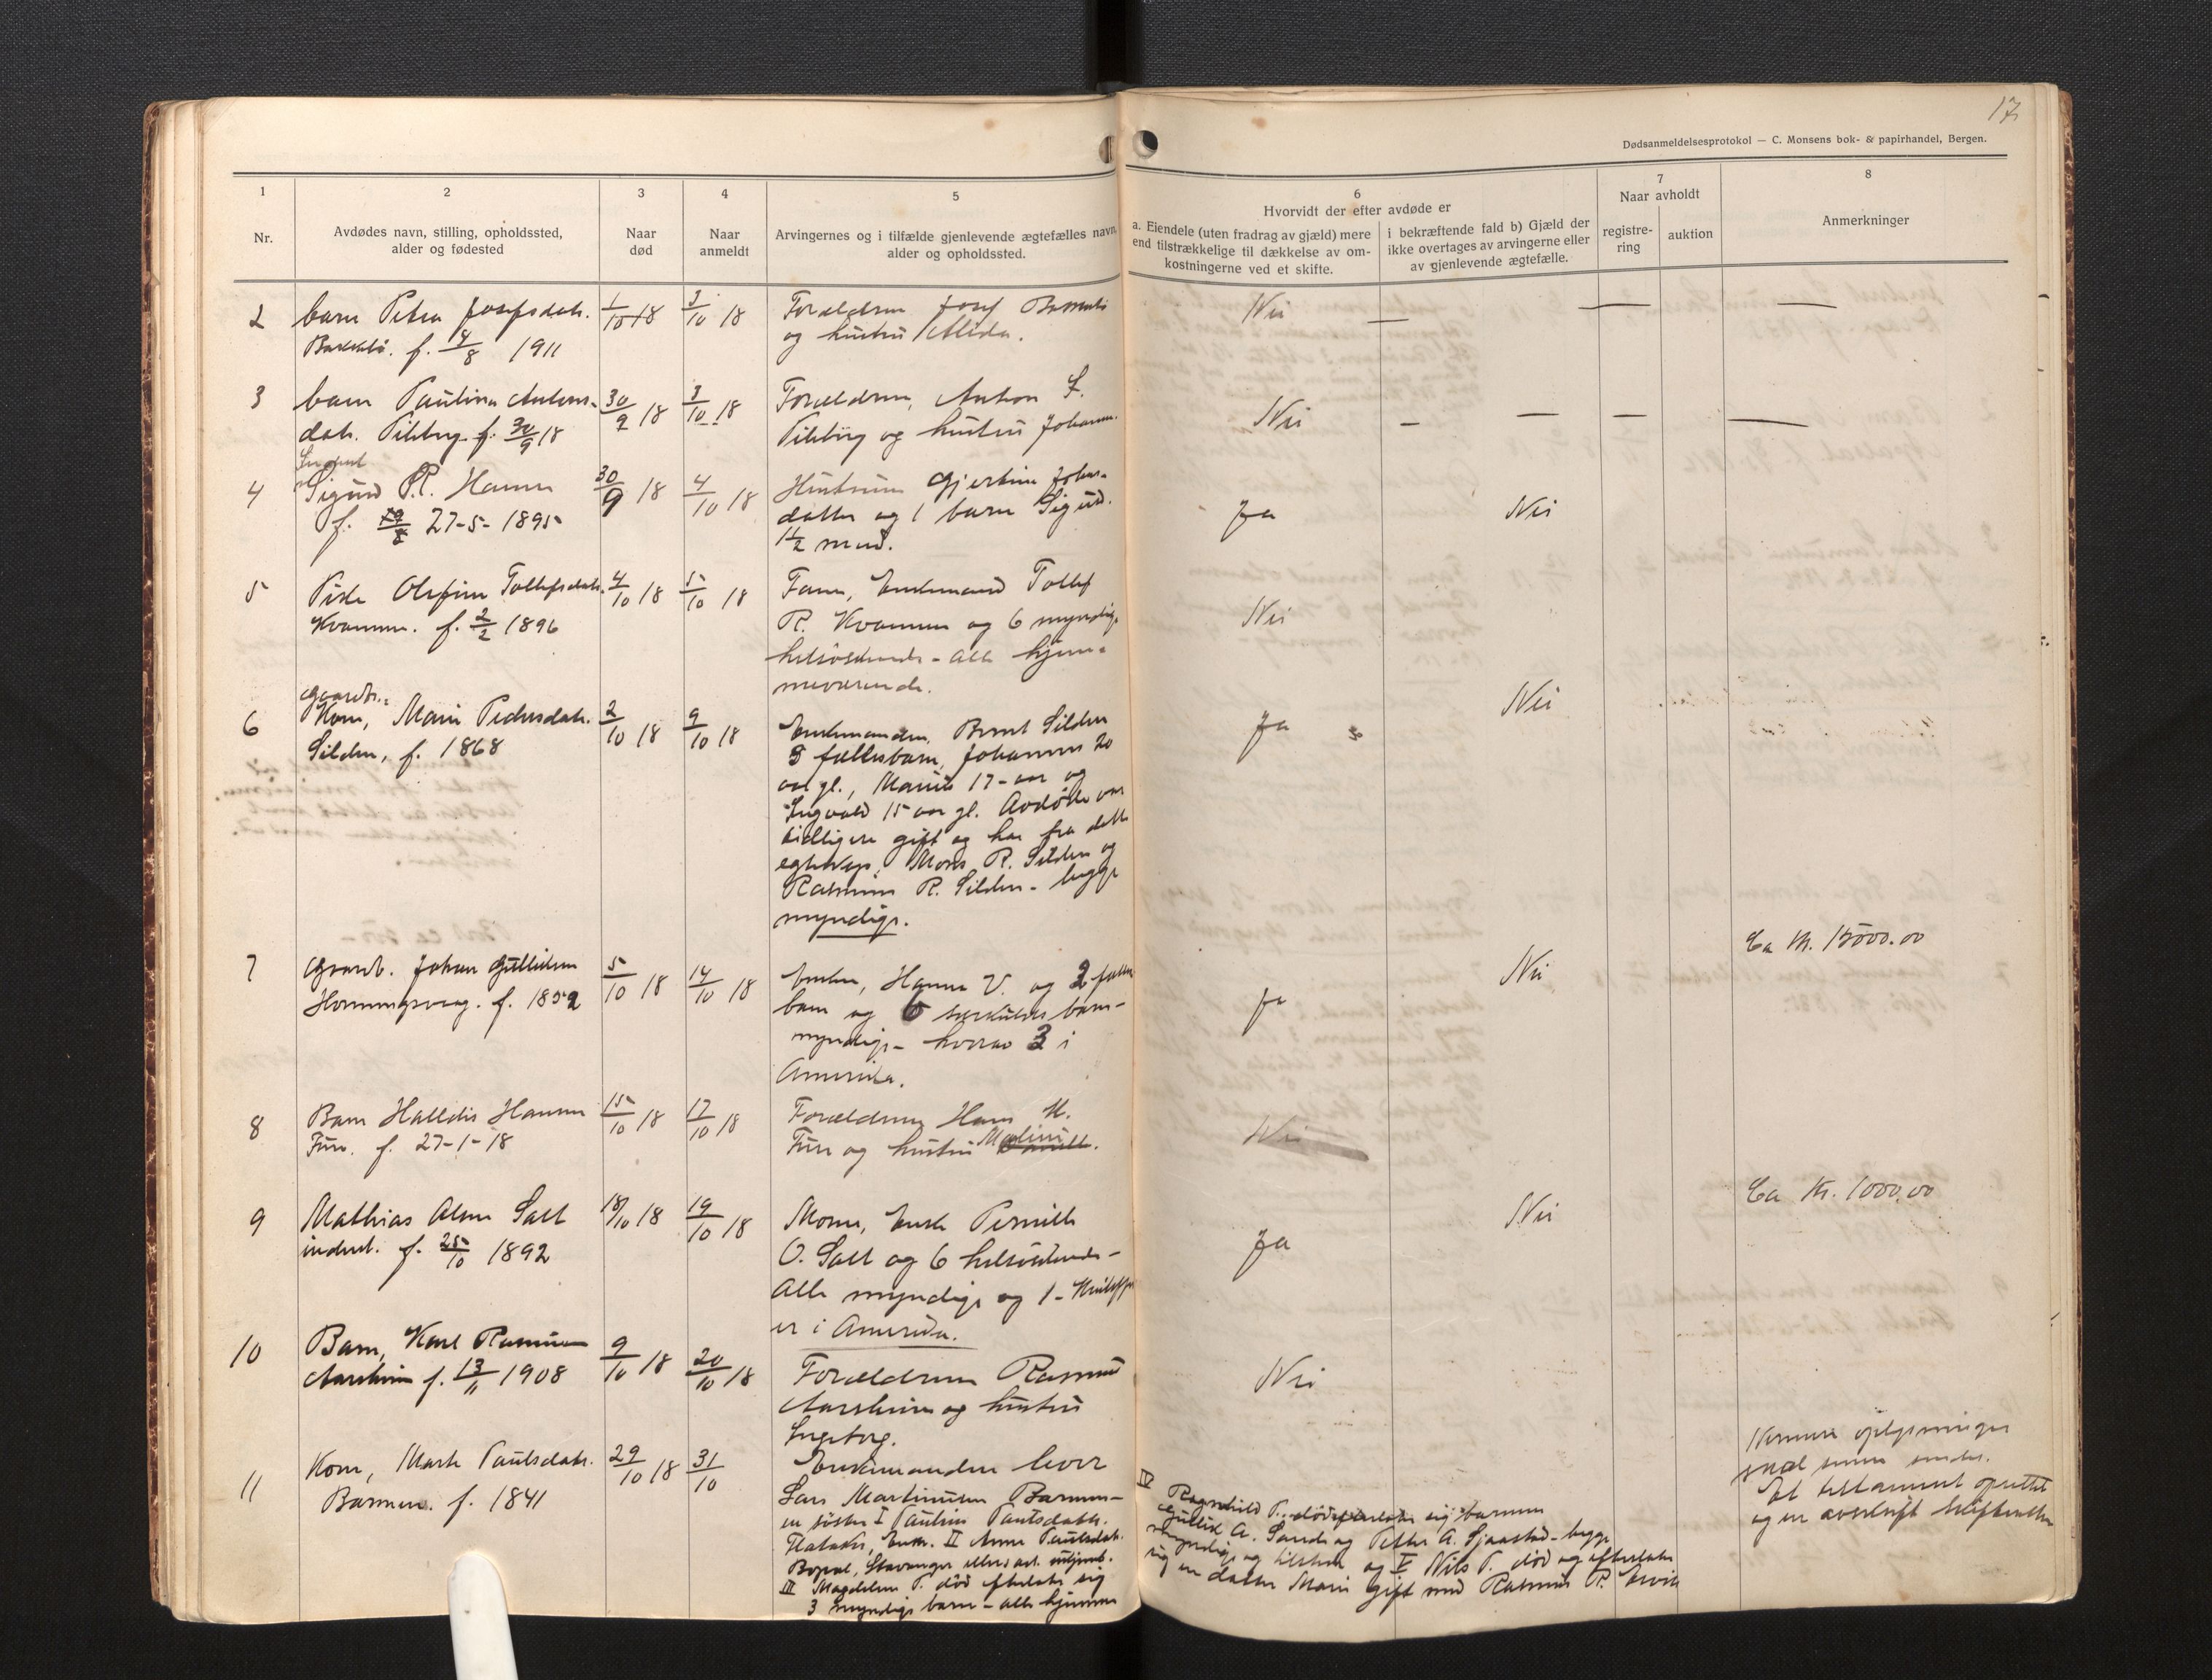 17
Dødsanmeldelsesprotokol — C. Monsens bok- & papirhandel, Bergen.
1
Nr.
2
Avdødes navn, stilling, opholdssted,
alder og fødested
3
Naar
død
4
Naar
anmeldt
5
Arvingernes og i tilfælde gjenlevende ægtefælles navn,
alder og opholdssted.
6
Hvorvidt der efter avdøde er
a. Eiendele (uten fradrag av gjæld) mere
end tilstrækkelige til dækkelse av om-
kostningerne ved et skifte.
i bekræftende fald b) Gjæld der
ikke overtages av arvingerne eller
av gjenlevende ægtefælle.
7
Naar avholdt
registre-
ring
auktion
8
Anmerkninger
2
barn Petra Josefsdatr.
f. 1911
1/10 18
3/10 18
Forældrene Josef
og hustru Alida.
Nei — — —
3
barn Paulina Antons-
datr. f. 30/9 18
30/9 18
3/10 18
Forældrene, Anton
og hustru Johanne.
Nei — — — —
4
Sigurd P.R. Hamre
f. 27-5-1895
30/9 18
4/10 18
Hustruen Gjertine Johns-
datter og 1 barn Sigurd.
1 1/2 mnd.
Ja
Nei
5
Pike Olefine Tollefsdatr.
Kvamme. f. 2/2 1896
4/10 18
5/10 18
Faren, Enkemand Tollef
R. Kvamme og 6 myndige
helsøskende - alle hjem-
meværende.
Nei
6
Gaardbr.
Kone, Marie Pedersdatr.
Silden, f. 1868
2/10 18
9/10 18
Enkemanden, Bernt Silden
3 fællesbarn, Johannes 20
aar gl., Marius 17-aar og
Ingvald 15 aar gl. Avdøde var
tidligere gift og har fra dette
egteskap, Mons R. Silden og
Rasmus R. Silden - begge
myndige.
Ja
Nei
7
Gaardb. Johan Gulliksen
Horningsvaag. f. 1852
5/10 18
14/10 18
Enken, Hanna V. og 2 fælles
barn og 6 særkulds barn -
myndige - hvorav 3 i
Amerika.
Ja
Nei
Ca kr. 15000.00
8
Barn Halldis Hansen
Fure. f. 27-1-18
15/10 18
17/10 18
Forældrene Hans M.
Fure og hustru Maline
Nei
9
Mathias Olsen Salt
inderst. f. 25/10 1892
18/10 18
19/10 18
Moren, Enke Pernille
O. Salt og 6 helsøskende -
Alle myndige og 1 -
er i Amerika.
Ja
Nei
Ca kr. 1000.00
10
Barn, Karl Rasmus
Aarsheim f. 13/11 1908
9/10 18
20/10 18
Forældrene Rasmus
Aarsheim og hustru
Ingeborg.
Nei
11
Kone, Marte Paulsdatr.
Barmen. f. 1841
29/10 18
31/10
Enkemanden lever
Lars Martinusen Barmen -
en søster I Pauline Paulsdatr.
Flatøker, Enke. II Anne Paulsdatr.
Stavanger
III Magdelene P. død efterlater sig
3 myndige barn - alle hjemme
IV Ragnhild P. død efterlater sig barnene
Gullik A. Sande og Petter A. Sjaastad - begge
myndige og tilstede og V Nils P. død og efterlater
sig en datter Marie gift med Rasmus R. Ervik
Nærmere oplysninger
skal senere sendes.
Et testament oprettet
og en avskrift skifteretten